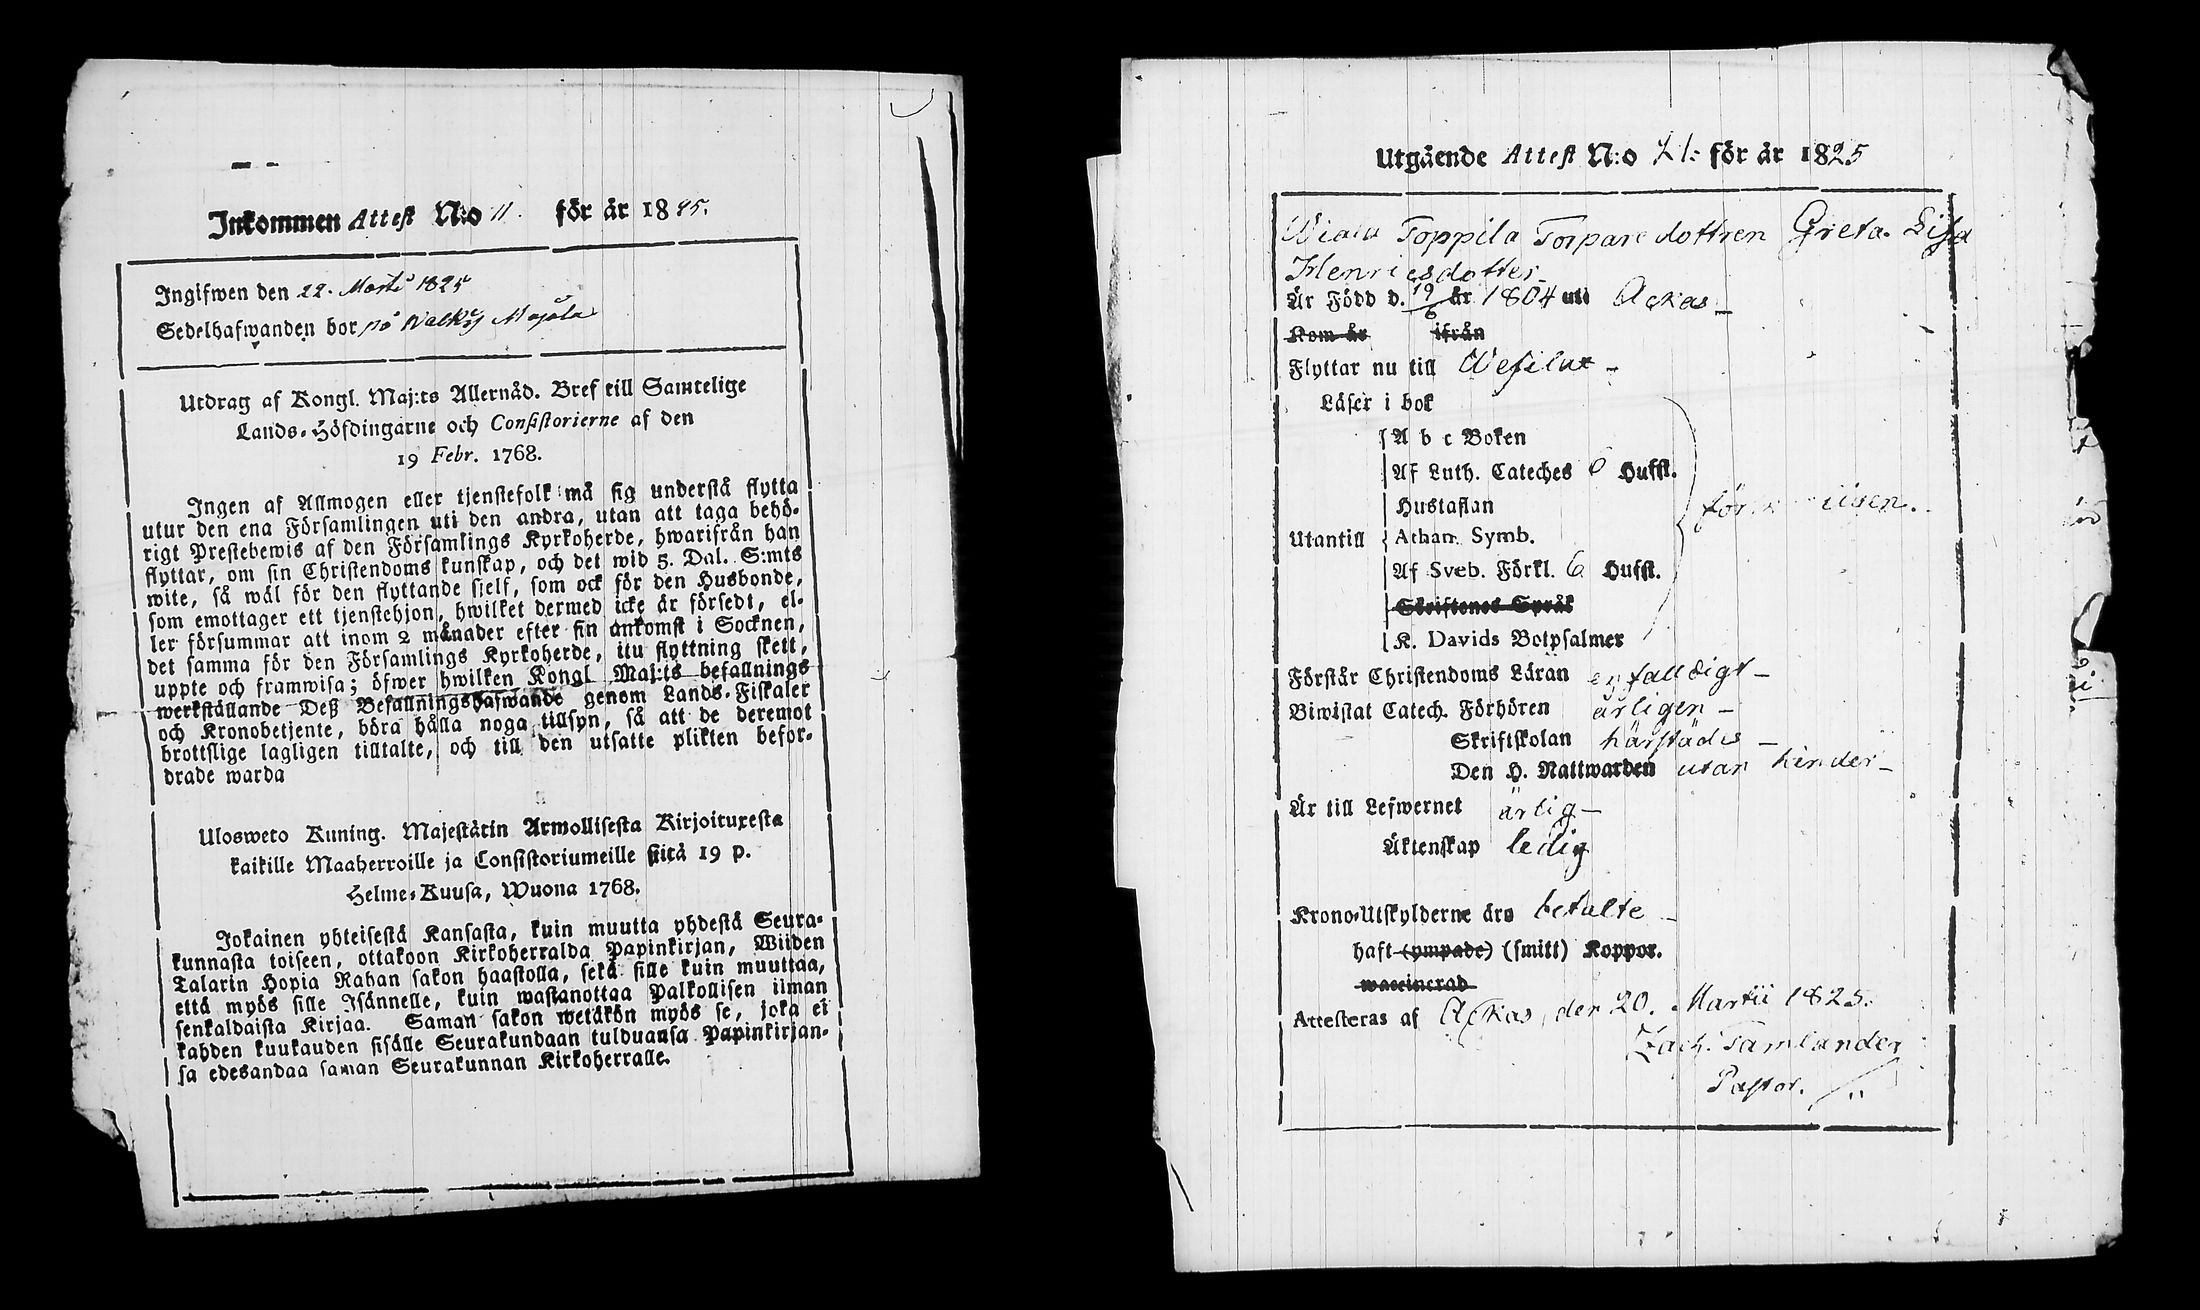 Inkommen Attest N:o 11. för år 1825.
Ingifwen den 22. Martii 1825
Sedelhafwanden bor på
Utdrag af Kongl. Maj:ts Allernåd. Bref till Samtelige
Lands-Höfdingarne och Consistorierne af den
19 Febr. 1768.
Ingen af Allmogen eller tjenstefolk må sig understå flytta
utur den ena Församlingen uti den andra, utan att taga behö-
rigt Prestebewis af den Församlings Kyrkoherde, hwarifrån han
flyttar, om sin Christendoms kunskap, och det wid 5. Dal. S:mts
wite, så wäl för den flyttande sielf, som ock för den Husbonde,
som emottager ett tjenstehjon, hwilket dermed icke är försedt, el-
ler försummar att inom 2 månader efter sin ankomst i Socknen,
det samma för den Församlings Kyrkoherde, itu flyttning skett,
uppte och framwisa; öfwer hwilken Kongl Maj:ts befallnings
werkställande Deß Befallningshafwande genom Lands-Fiskaler
och Kronobetjente, böra hålla noga tillsyn, så att de deremot
brottslige lagligen tilltalte, och till den utsatte plikten befor-
drade warda
Ulosweto Kuning. Majestätin Armollisesta Kirjoituxesta
kaikille Maaherroille ja Consistoriumeille siitä 19 p.
Helme-Kuusa, Wuona 1768.
Jokainen yhteisestä Kansasta, kuin muutta yhdestä Seura-
kunnasta toiseen, ottakoon Kirkoherralda Papinkirjan, Wiiden
Talarin Hopia Rahan sakon haastolla, sekä sille kuin muuttaa,
että myös sille Isännelle, kuin wastanottaa Palkollisen ilman
senkaldaista Kirjaa. Saman sakon wetäkön myös se, joka ei
kahden kuukauden sisälle Seurakundaan tulduansa Papinkirjan-
sa edesandaa saman Seurakunnan Kirkoherralle.
Utgående Attest N:o 21: för år 1825
Toppila Torparedottren Greta Lisa
Henricsdotter
Är Född d. 19/6 år 1804 uti Ackas
Kom år ifrån
Flyttar nu till Wesilax
Läser i bok
A b c Boken
Af Luth. Cateches 6 Hufst.
Hustaflan
Utantill Athan. Symb.
Af Sveb. Förkl. 6 Hufst.
Skriftenes Språk
K. Davids Botpsalmer
Förstår Christendoms Läran enfalldigt
Biwistat Catech. Förhören årligen
Skriftskolan härstädes
Den H. Nattwarden utan hinder
Är till Lefwernet ärlig
Äktenskap ledig
Krono-Utskylderne äro betalte
haft (ympade) (smitt) Koppor.
waccinerad
Attesteras af Ackas, den 20. Martii 1825.
Zach. Tamlander
Pastor.